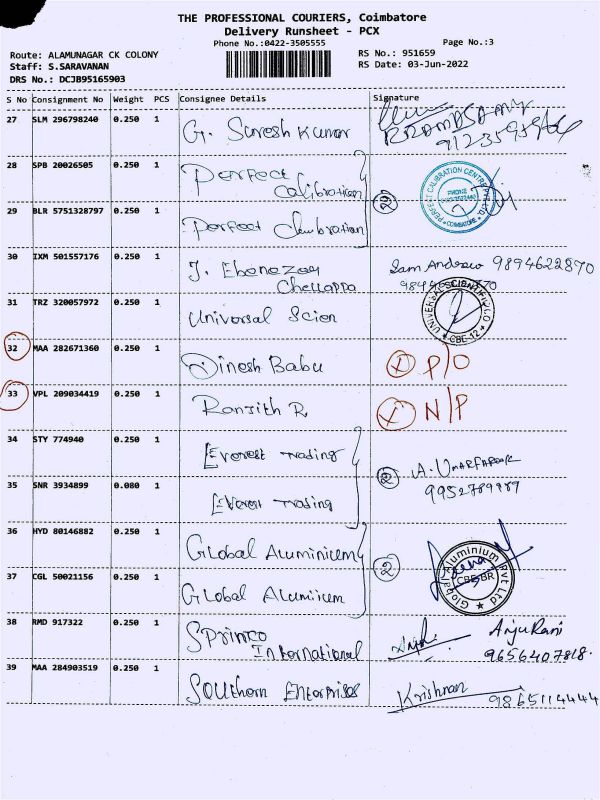 THE PROFESSIONAL COURIERS, Coimbatore
Delivery Runsheet - PCX
Phone No.:0422-3505555
Page No.:3
Route: ALAMUNAGAR CK COLONY
Staff: S.SARAVANAN
DRS No.: DCJB95165903
RS No.: 951659
RS Date: 03-Jun-2022
S No Consignment No Weight PCS Consignee Details Signature
27 SLM 296798240 0.250 1 G. Suresh Kumar
28 SPB 20026505 0.250 1 Perfect Calibration
PERFECT CALIBRATION CENTRE PVT LTD. COIMBATORE
29 BLR 5751328797 0.250 1 Perfect
30 IXM 501557176 0.250 1 J. Ebenezer Chellappa Sam Andrew 9894622870
31 TRZ 320057972 0.250 1 Universal Scien
UNIVERSAL SCIENTIFIC CO. CBE-12
32 MAA 282671360 0.250 1 Dinesh Babu P/O
33 VPL 209034419 0.250 1 Ranjith R. N/P
34 STY 774940 0.250 1 Everest Trading
2 A. UMARFAROOK
35 SNR 3934899 0.080 1 Everest Trading
36 HYD 80146882 0.250 1 Global Aluminium
2.
Global Aluminium Pvt Ltd CBE-BR
37 CGL 50021156 0.250 1 Global Aluminium
38 RMD 917322 0.250 1 Sprinco International Anju Rani
9656407818.
39 MAA 284903519 0.250 1 Southern Enterprises Krishnan 9865114444